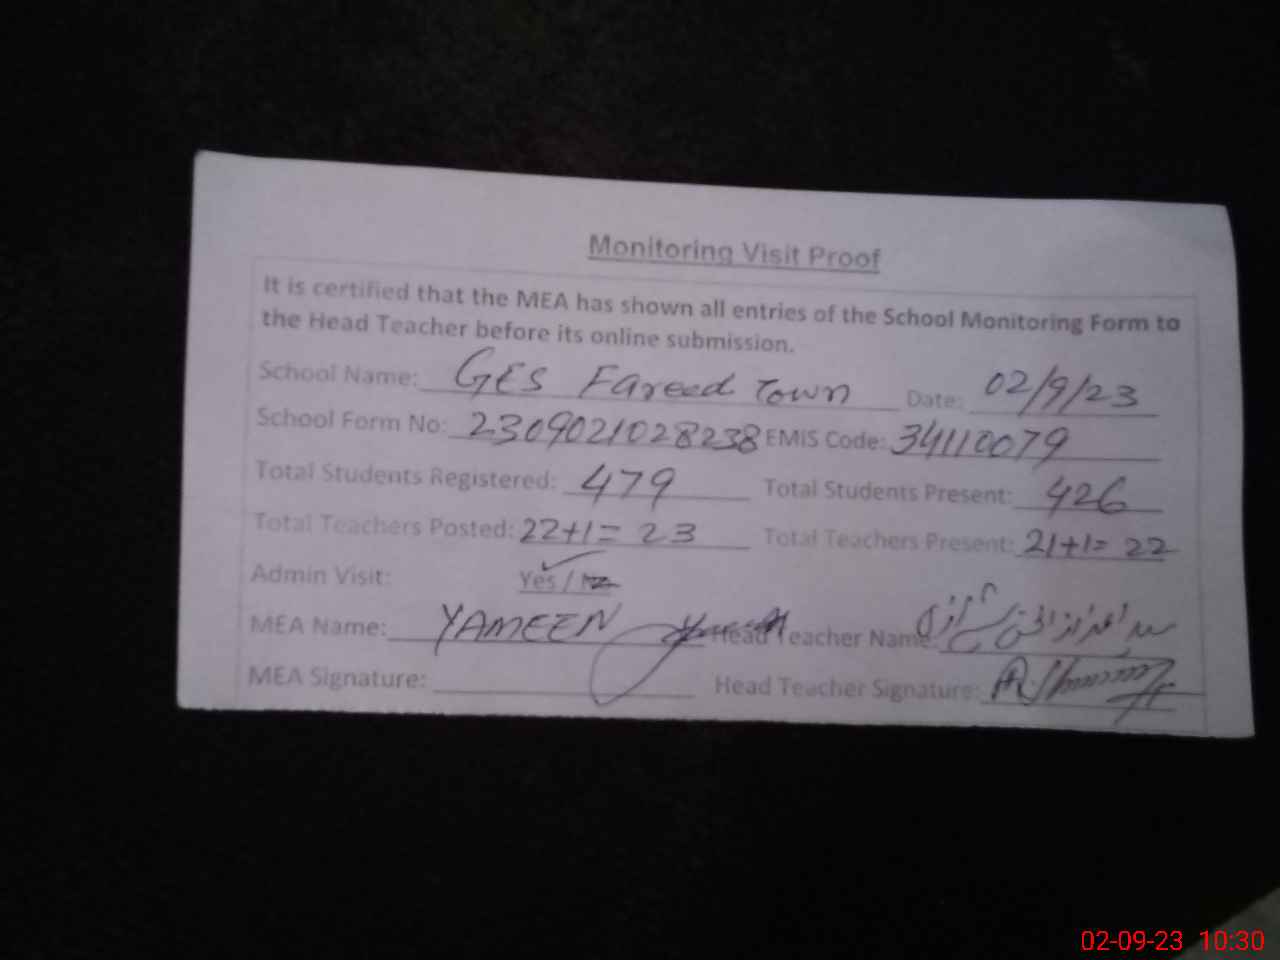 Monitoring Visit Proof
It is certified that the MEA has shown all entries of the School Monitoring Form to
the Head Teacher before its online submission.
School Name: GES Fareed Town Date: 02/9/23
School Form No: 2309021028238 EMIS Code: 34110079
Total Students Registered: 479 Total Students Present: 426
Total Teachers Posted: 22+1= 23 Total Teachers Present: 21+1= 22
Admin Visit: Yes / No
MEA Name: YAMEEN Head Teacher Name:
MEA Signature: Head Teacher Signature:
02-09-23 10:30